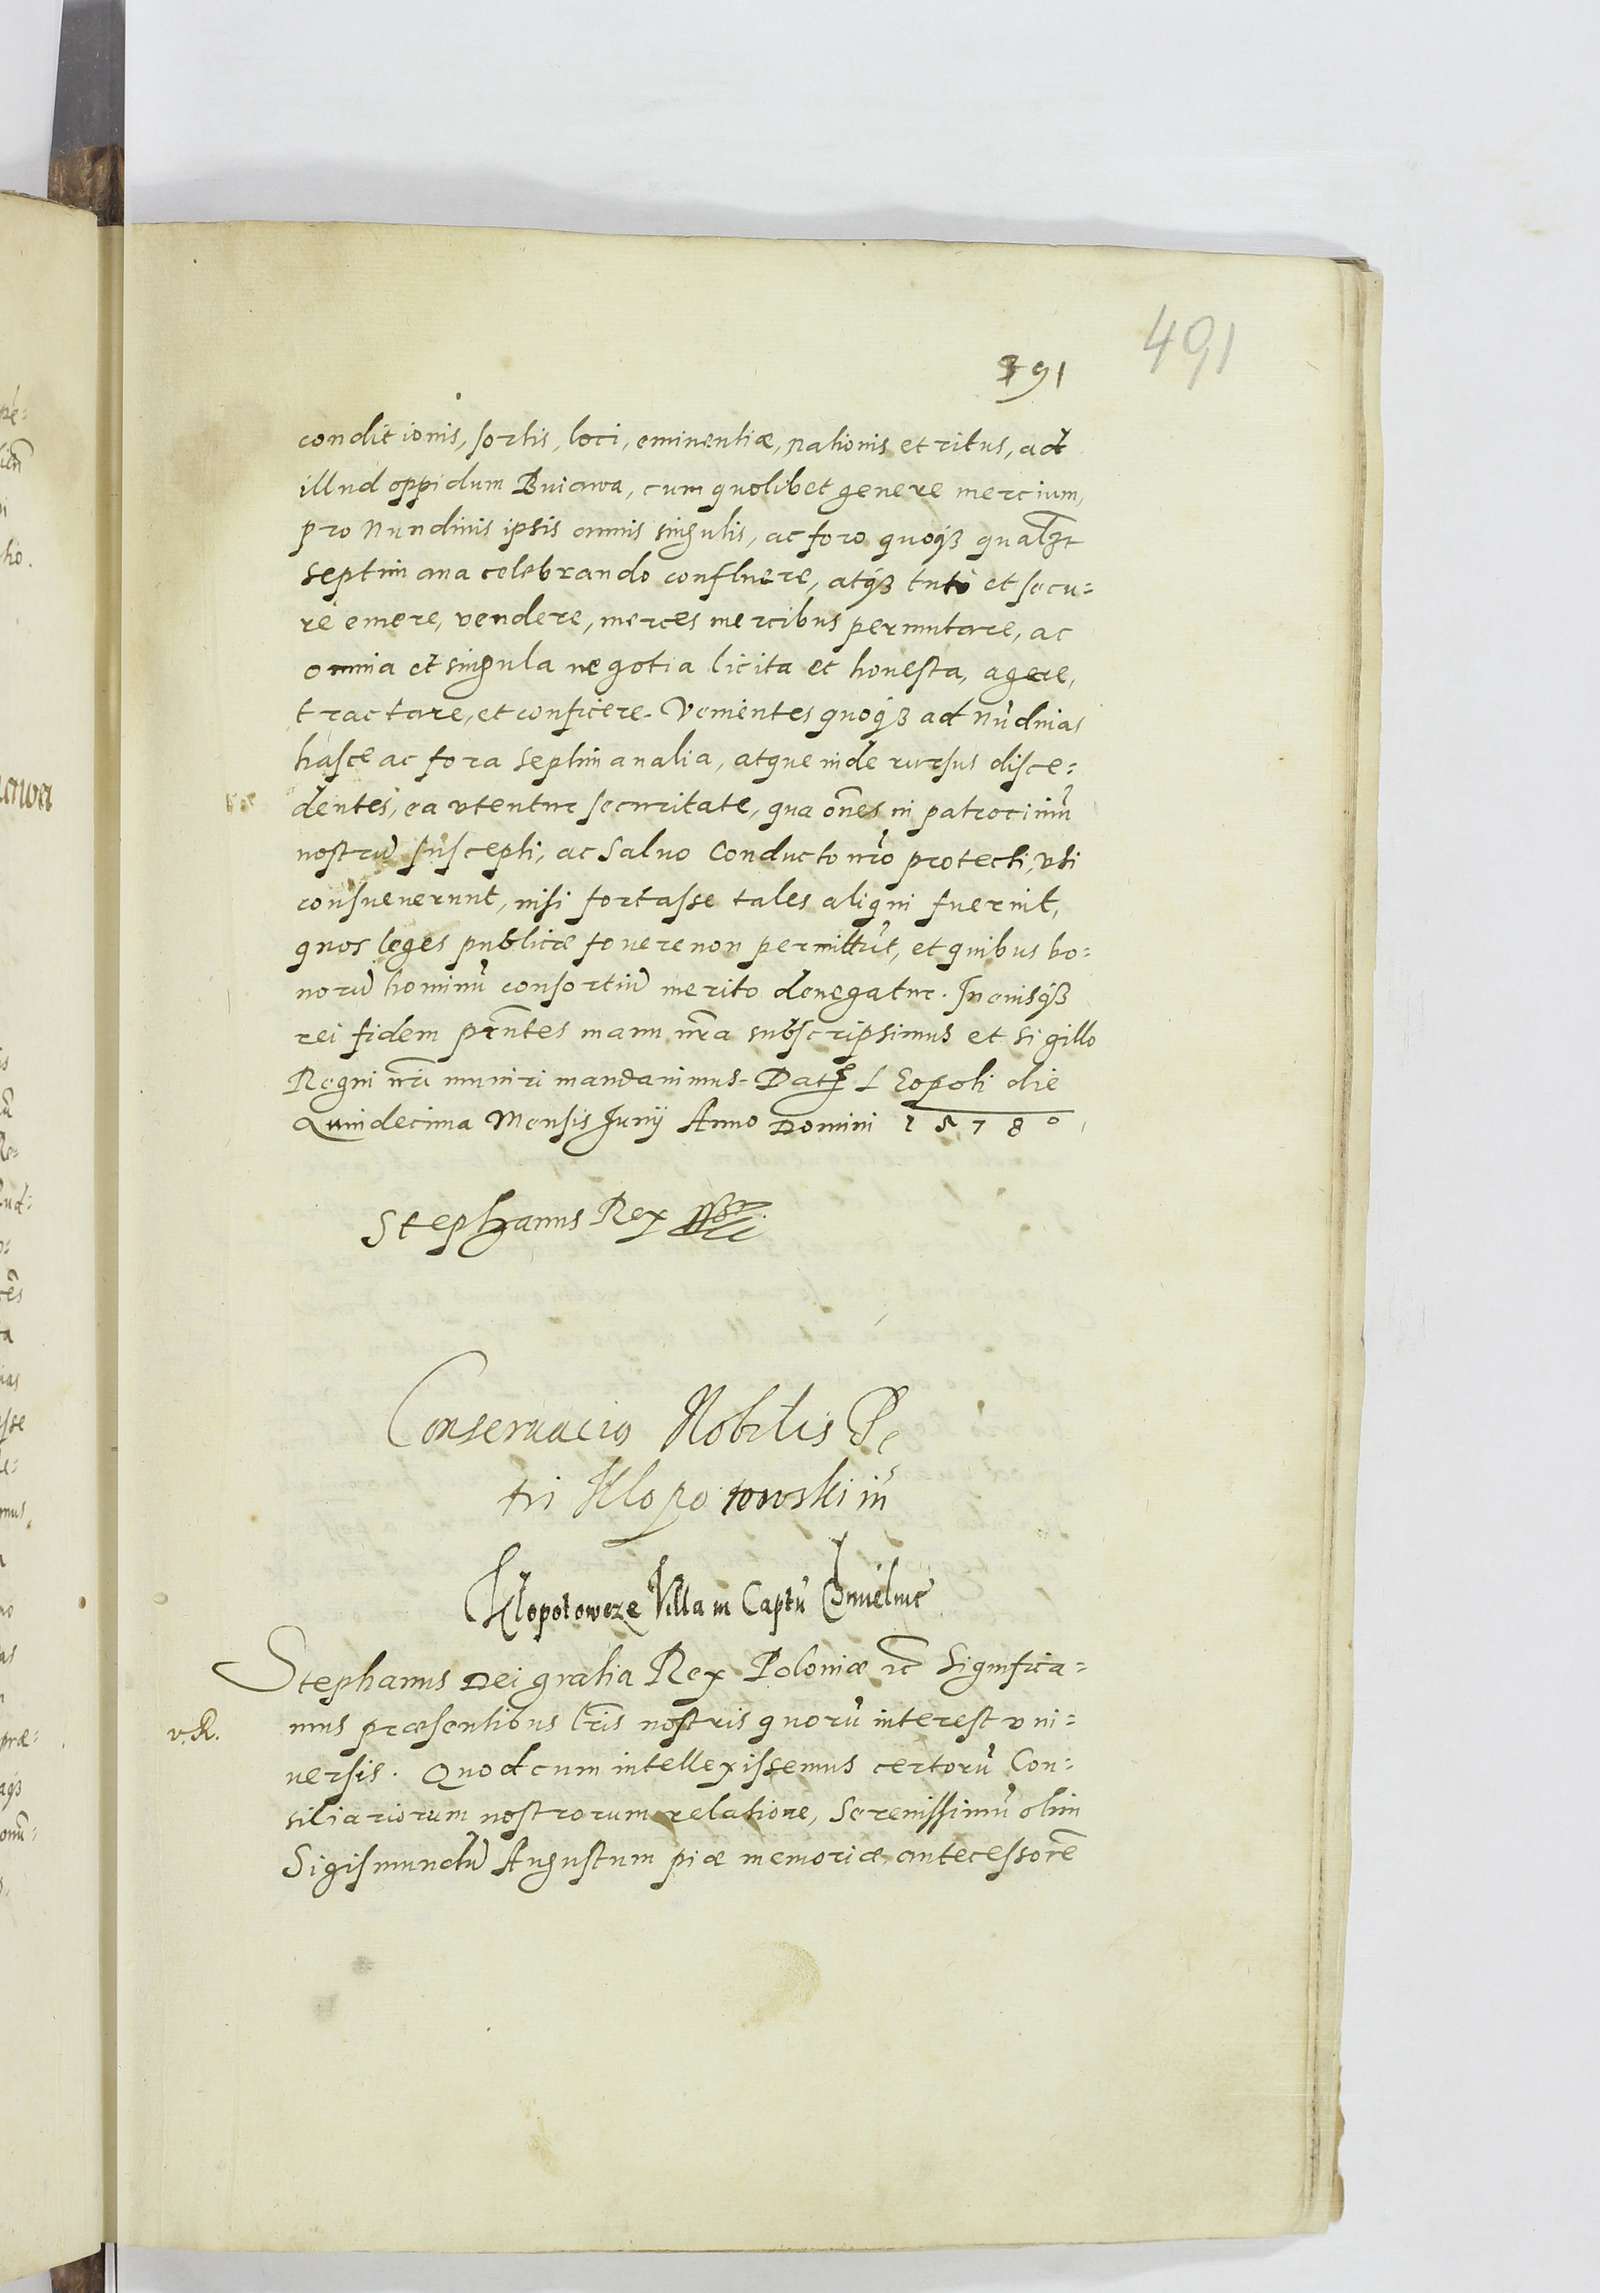 491
391
conditionis, sortis, loci, eminentiæ, nationis et ritus, ad
illud oppidum Buiawa, cum quolibet genere mercium,
pro Nundinis ipsis annis singulis, ac foro quoqȝ qualȝt
septimana celebrando confluere, atqȝ tuto et secu=
re emere, vendere, merces mercibus permutare, ac
omnia et singula negotia licita et honesta, agere,
tractare, et conficere. Venientes quoqȝ ad Nūdinas
hasce ac fora septimanalia, atque inde rursus disce=
dentes, ea vtentur securitate, qua oēs in patrociniū
nostrū suscepti, ac Saluo Conducto nrō protecti, vti
consueuerunt, nisi fortasse tales aliqui fuerint,
quos leges publicæ fouere non permittūt, et quibus bo=
norū hominū consortiū merito denegatur. In cuius qȝ
rei fidem prn̄tes manu nr̄a subscripsimus et sigillo
Regni nr̄i muniri mandauimus. Dat Leopoli die
Quindecima Mensis Junij Anno Domini 1578
Stephanus Rex
Conseruacio Nobilis Pe
tri Klopotowski in
Klopotowcze Villa in Captū Chmielnic
Stephanus Dei gratia Rex Poloniæ rc̄ Significa=
v. R.
mus præsentibus lr̄is nostris quorū interest vni=
uersis. Quod cum intellexissemus certorū Con=
siliariorum nostrorum relatione, Serenissimū olim
Sigismundū Augustum piæ memoriæ antecessorē